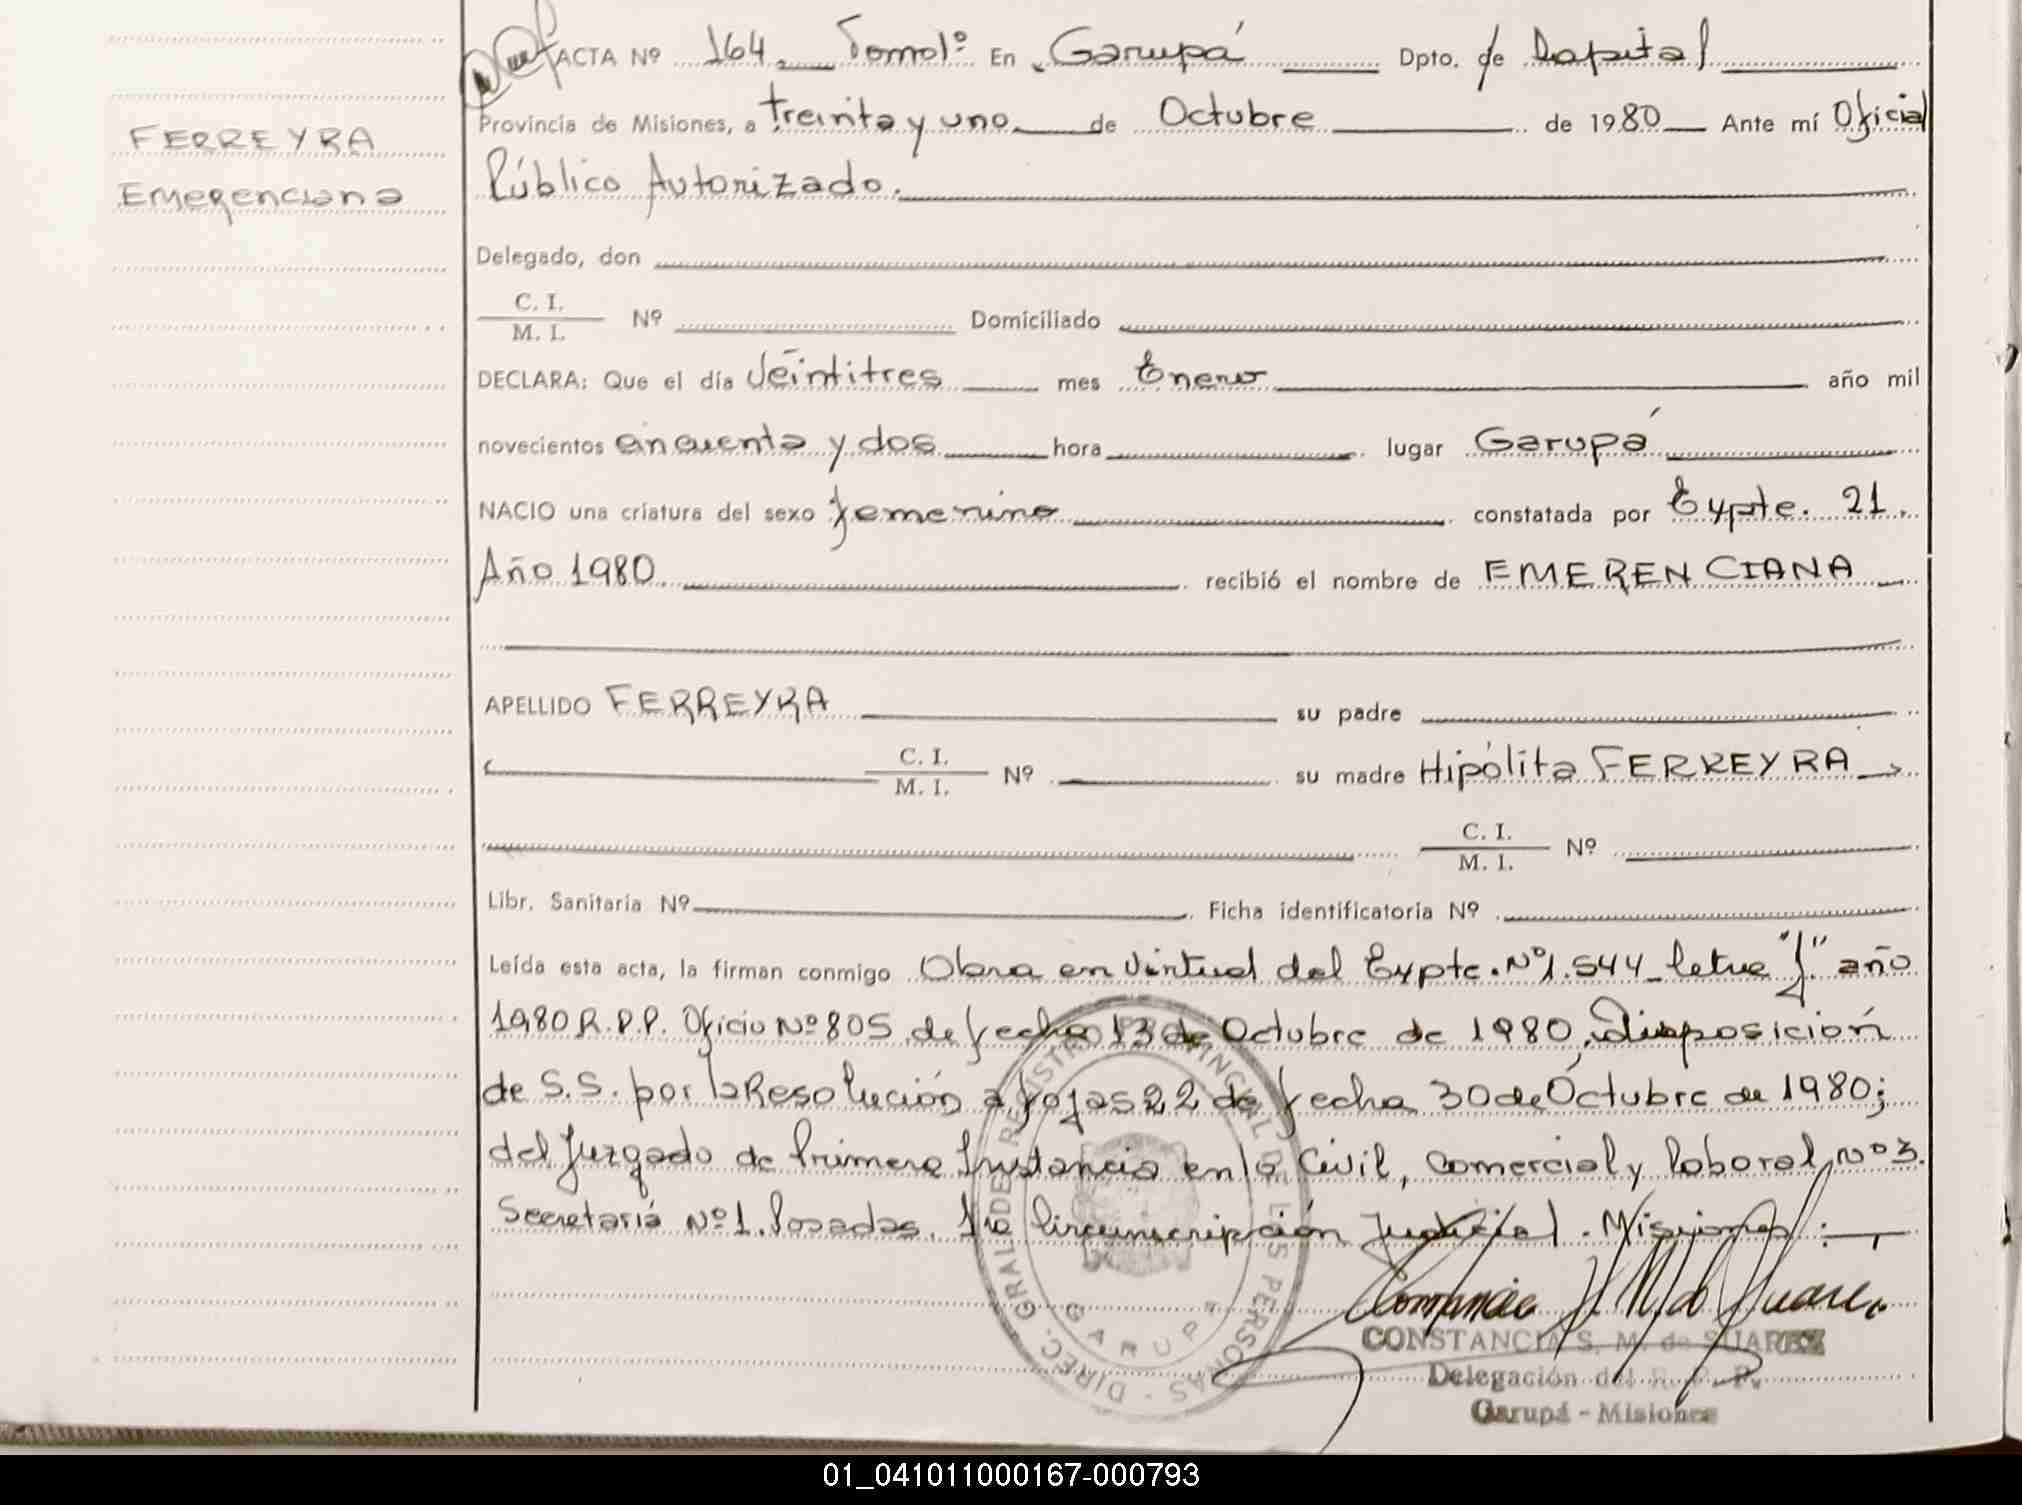 ACTA Nº 164 Tomo 1º En Garupá Dpto. de Capital
Provincia de Misiones, a treinta y uno de Octubre de 1980 Ante mí Oficial
FERREYRA
Emerenciana
Público Autorizado.
Delegado, don
C. I.
M. I. Nº Domiciliado
DECLARA: Que el día Veintitres mes Enero año mil
novecientos cincuenta y dos hora lugar Garupá
NACIO una criatura del sexo femenino constatada por Expte. 21.
Año 1980 recibió el nombre de EMERENCIANA
APELLIDO FERREYRA su padre
C. I.
M. I. Nº su madre Hipólita FERREYRA
C. I.
M. I. Nº
Libr. Sanitaria Nº Ficha identificatoria Nº
Leída esta acta, la firman conmigo Obra en virtud del Expte. Nº 1.544 letra "f" año
1980 R.P.P. Oficio Nº 805 de fecha 13 de Octubre de 1980, disposición
de S.S. por la Resolución a fojas 22 de fecha 30 de Octubre de 1980;
del Juzgado de Primera Instancia en lo Civil, Comercial y Laboral nº 3.
Secretaría Nº 1. Posadas. 1ra Circunscripción Judicial. Misiones:
DIREC. GRAL. DE REGISTRO PROVINCIAL DE LAS PERSONAS
GARUPA
CONSTANCIA S. M. de SUAREZ
Delegación del R. P. P.
Garupá - Misiones
01_041011000167-000793